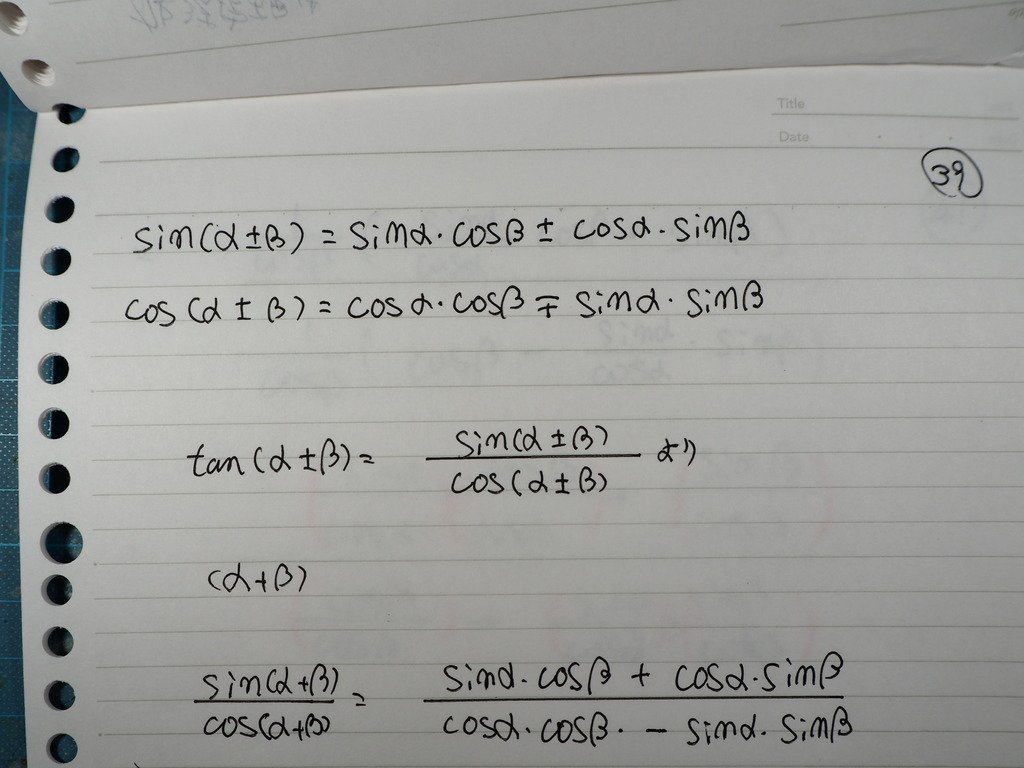 Title
Date
39
sin(α±β) = sinα·cosβ ± cosα·sinβ
cos(α±β) = cosα·cosβ ∓ sinα·sinβ
tan(α±β) = sin(α±β) / cos(α±β) より
(α+β)
sin(α+β) / cos(α+β) = sinα·cosβ + cosα·sinβ / cosα·cosβ· - sinα·sinβ